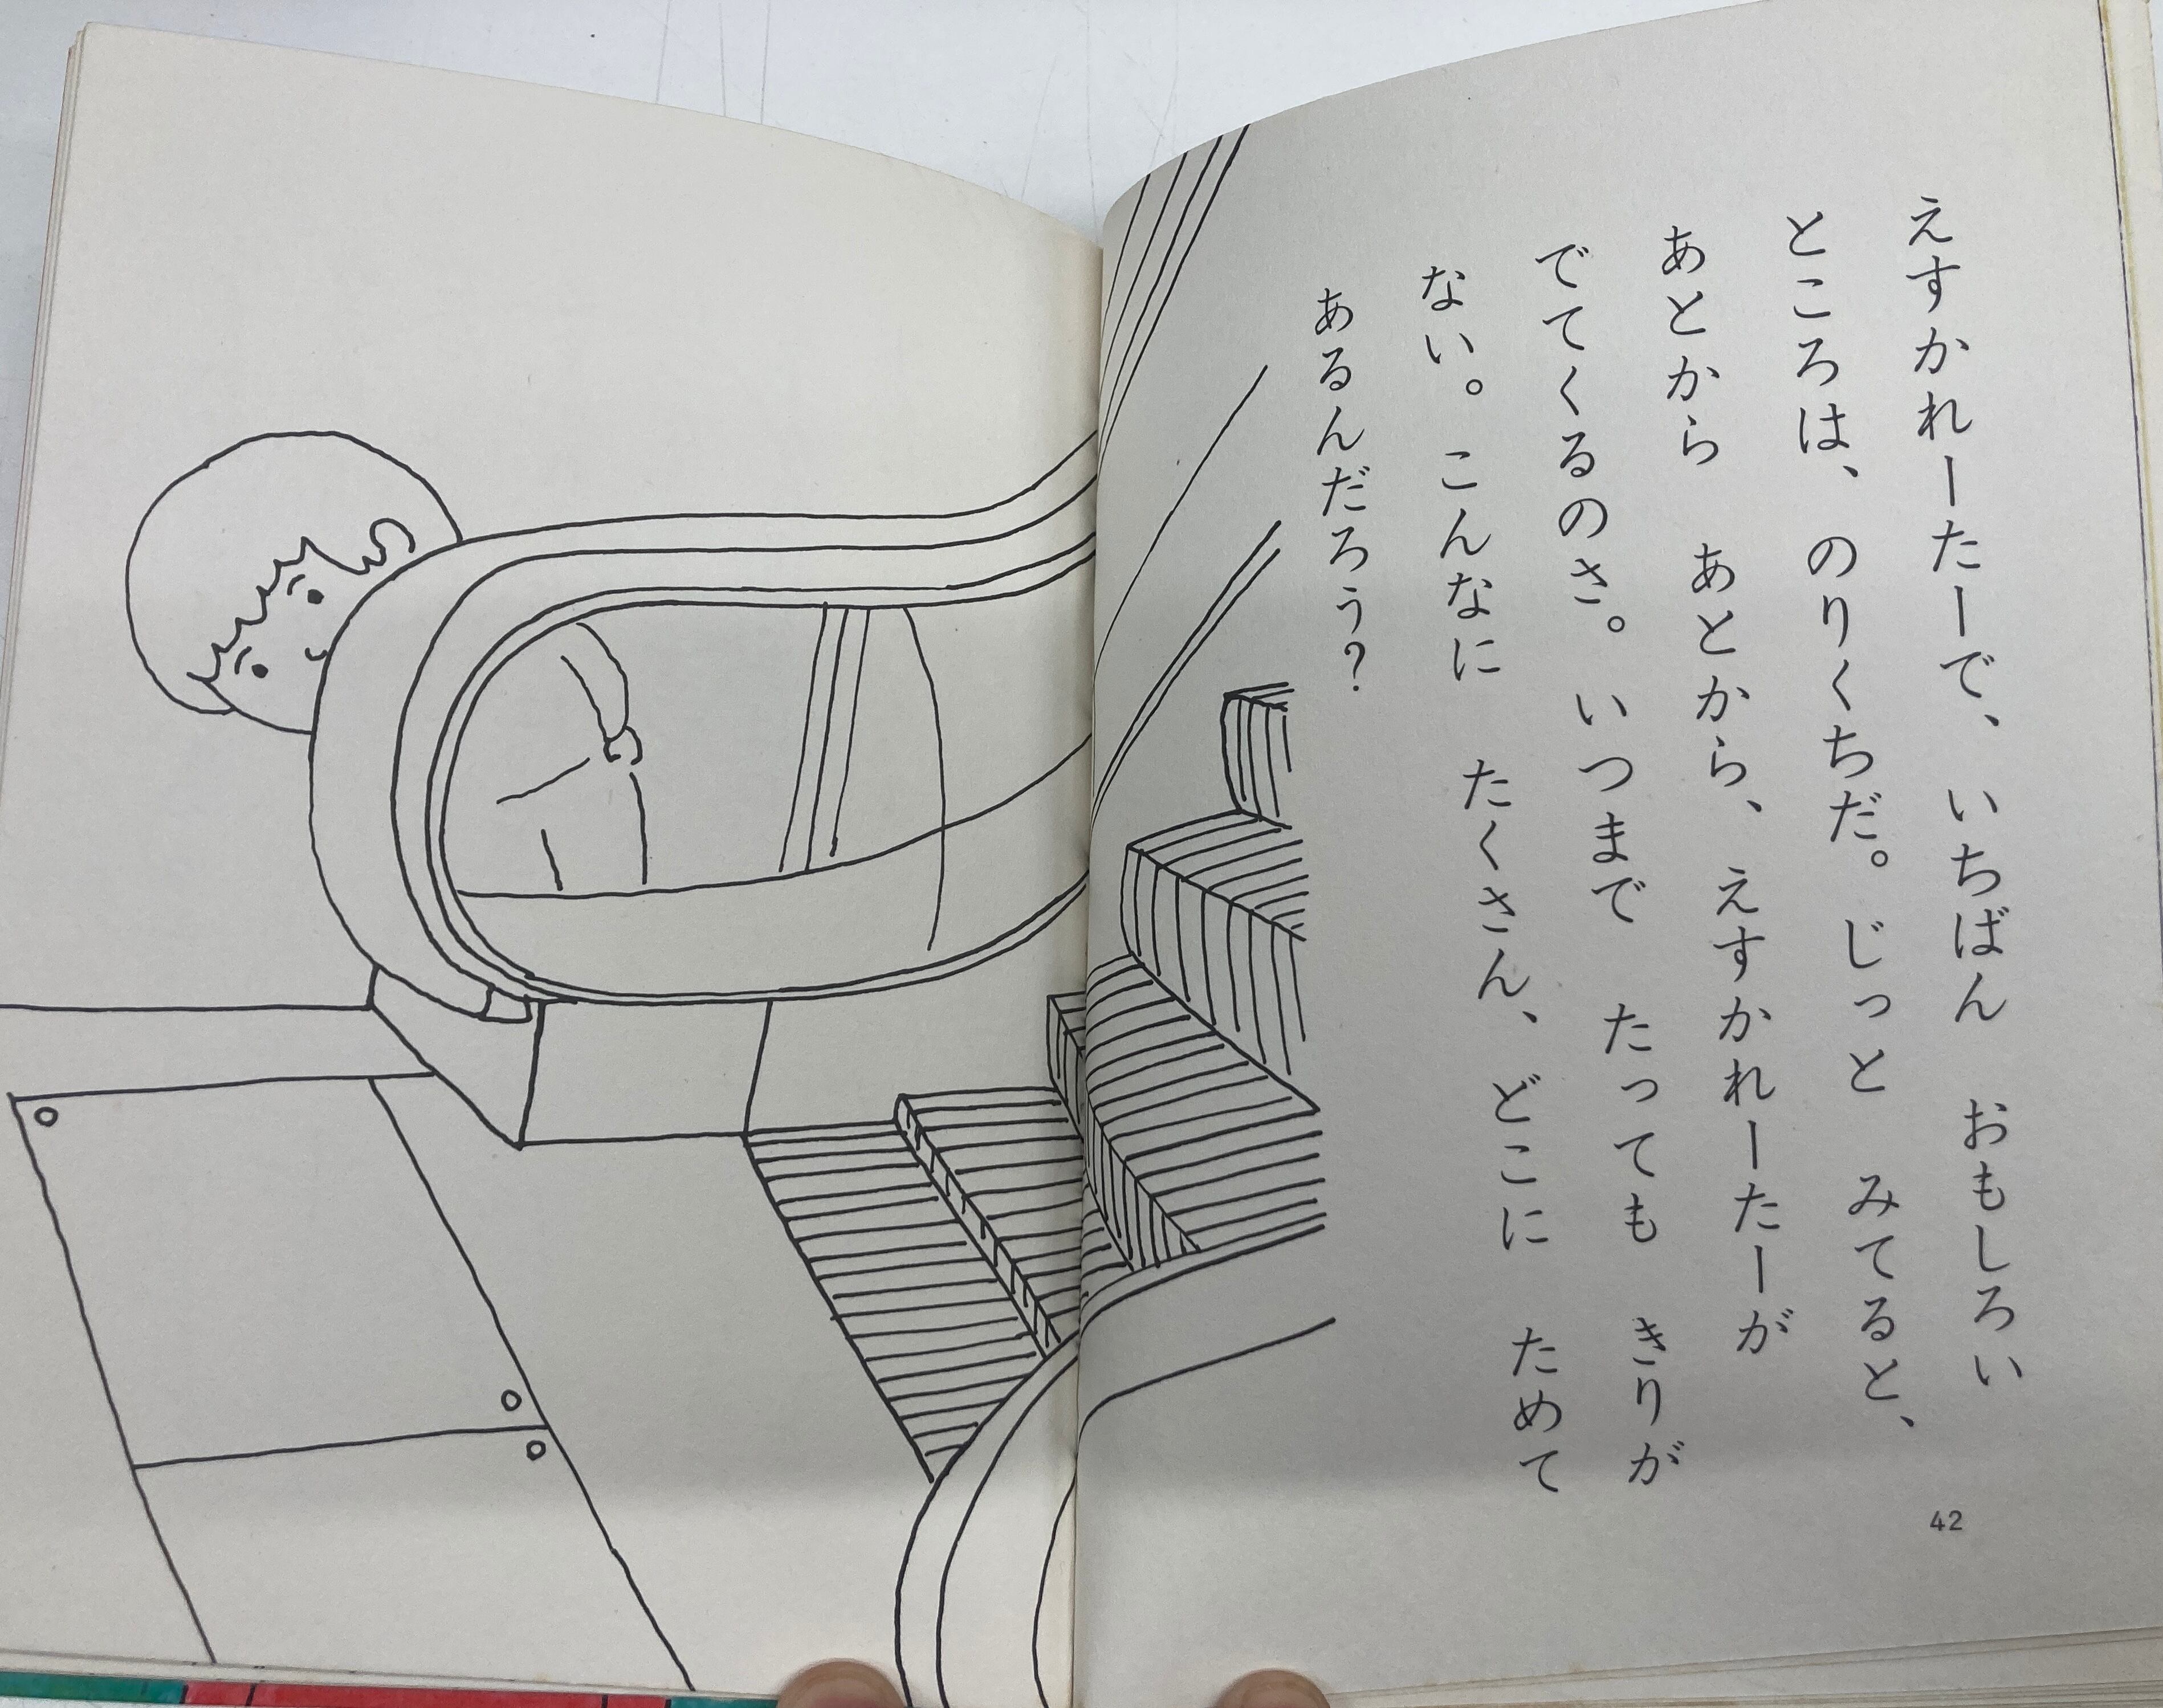 えすかれーたーで、いちばん　おもしろい
ところは、のりくちだ。じっと　みてると、
あとから　あとから、えすかれーたーが
でてくるのさ。いつまで　たっても　きりが
ない。こんなに　たくさん、どこに　ためて
あるんだろう？
42